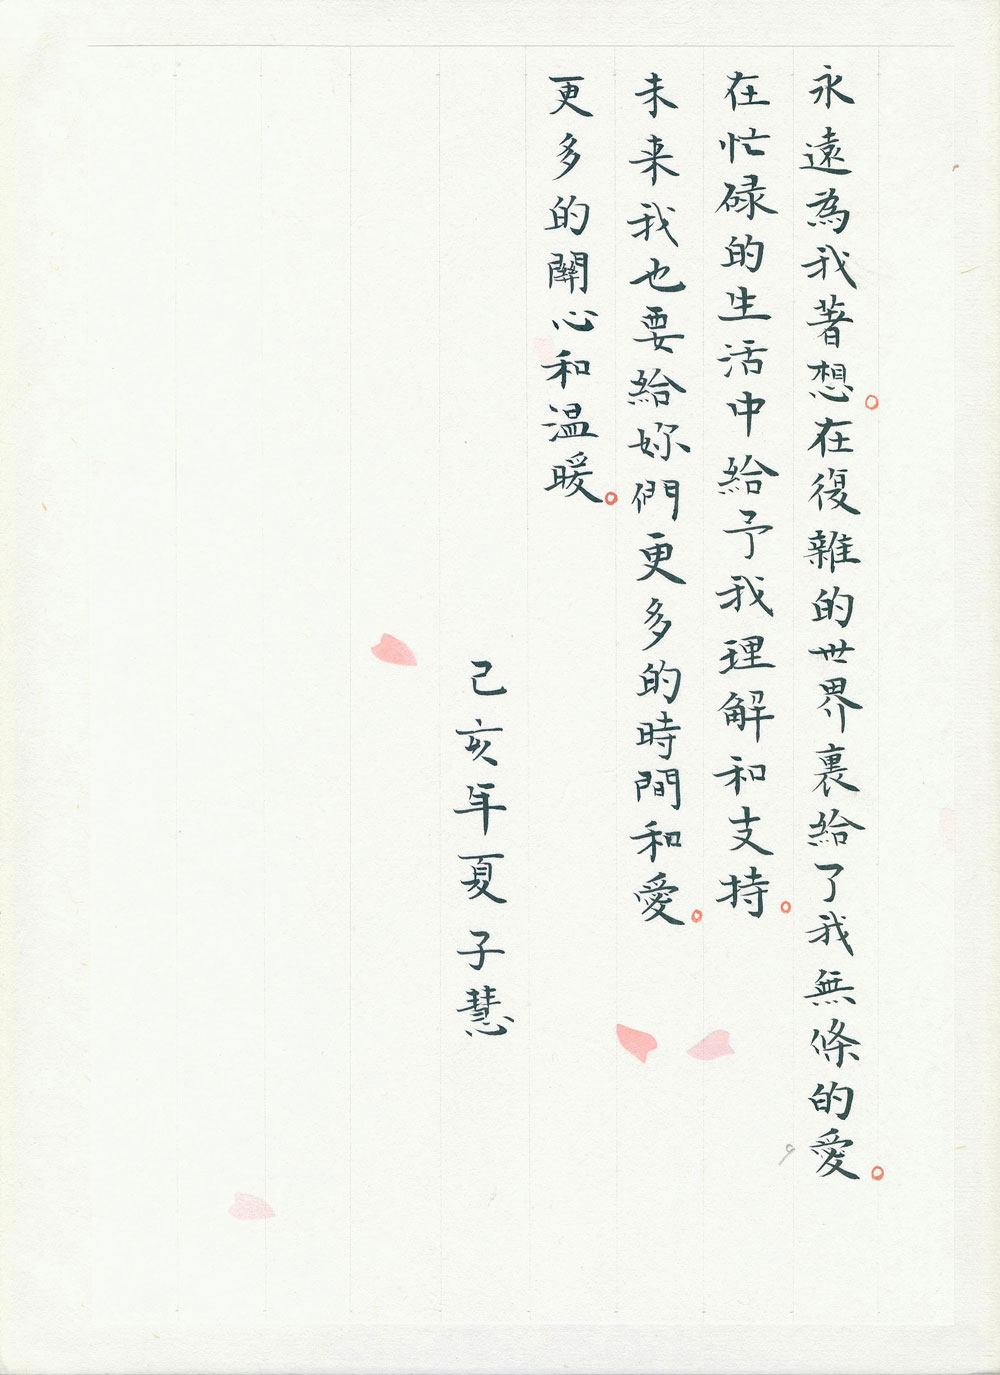 永遠為我著想。在復雜的世界裏給了我無條的愛。
在忙碌的生活中給予我理解和支持。
未来我也要給妳們更多的時間和愛。
更多的關心和温暖。
己亥年夏子慧